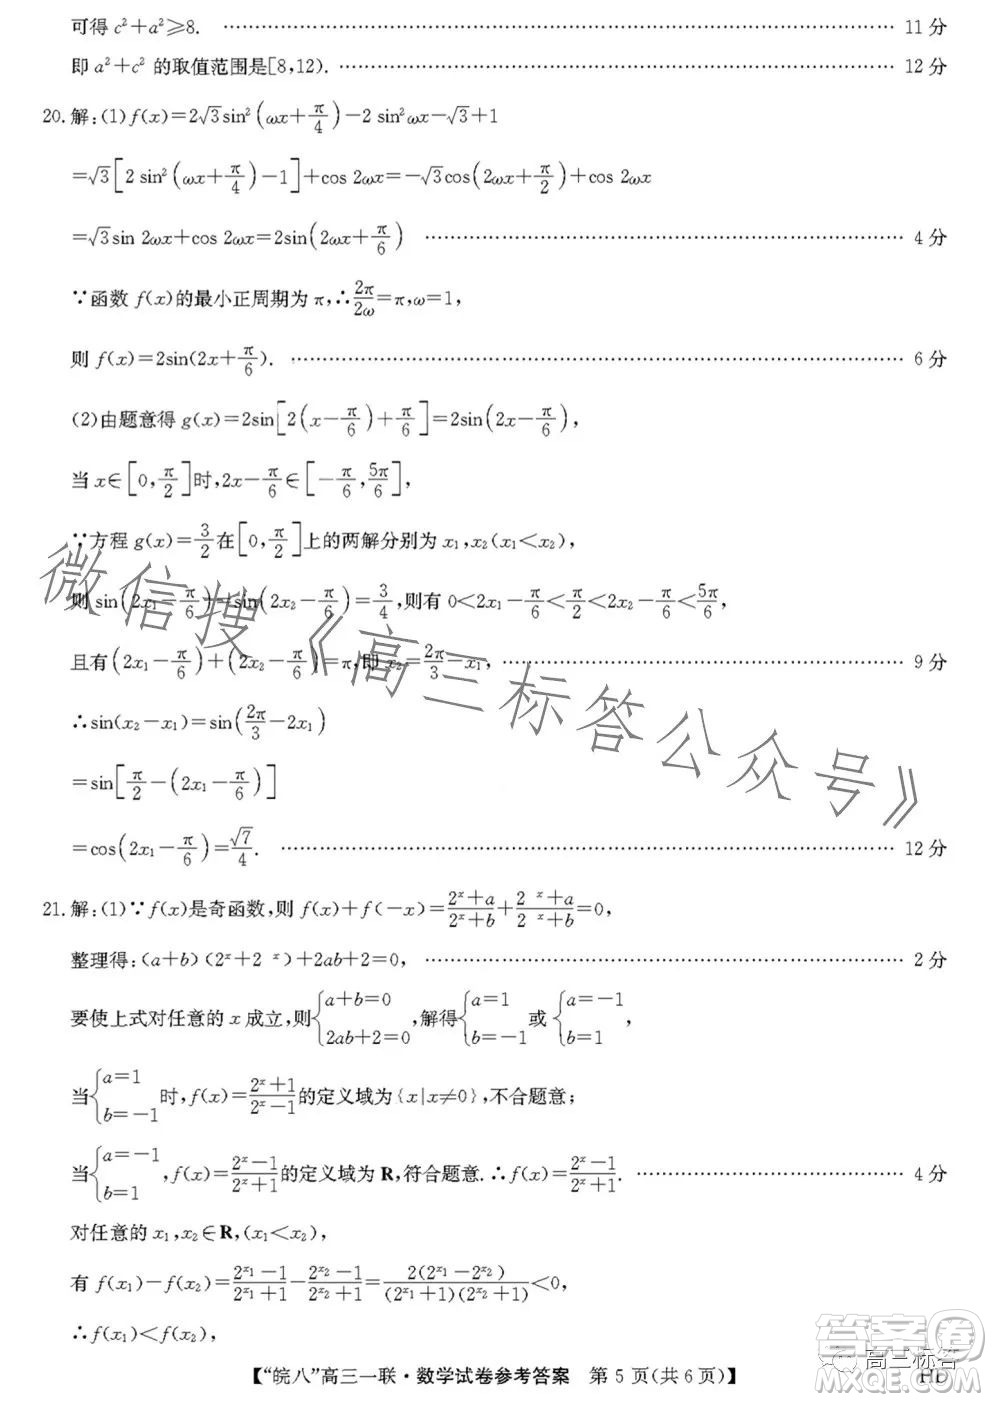 可得 c²+a²≥8. …… 11 分
即 a²+c² 的取值范围是[8,12). …… 12 分
20.解:(1)f(x)=2√3sin²(ωx+π/4)-2 sin²ωx-√3+1
=√3[2 sin²(ωx+π/4)-1]+cos 2ωx=-√3cos(2ωx+π/2)+cos 2ωx
=√3sin 2ωx+cos 2ωx=2sin(2ωx+π/6) …… 4 分
∵函数 f(x)的最小正周期为 π,∴2π/2ω=π,ω=1,
则 f(x)=2sin(2x+π/6). …… 6 分
(2)由题意得 g(x)=2sin[2(x-π/6)+π/6]=2sin(2x-π/6),
当 x∈[0,π/2]时,2x-π/6∈[-π/6,5π/6],
∵方程 g(x)=3/2在[0,π/2]上的两解分别为 x₁,x₂(x₁<x₂),
则 sin(2x₁-π/6)=sin(2x₂-π/6)=3/4,则有 0<2x₁-π/6<π/2<2x₂-π/6<5π/6,
且有(2x₁-π/6)+(2x₂-π/6)=π,即 x₂=2π/3-x₁, …… 9 分
∴sin(x₂-x₁)=sin(2π/3-2x₁)
=sin[π/2-(2x₁-π/6)]
=cos(2x₁-π/6)=√7/4. …… 12 分
21.解:(1)∵f(x)是奇函数,则 f(x)+f(-x)=(2ˣ+a)/(2ˣ+b)+(2 ˣ+a)/(2 ˣ+b)=0,
整理得:(a+b)(2ˣ+2 ˣ)+2ab+2=0, …… 2 分
要使上式对任意的 x 成立,则{a+b=0 2ab+2=0,解得{a=1 b=-1 或{a=-1 b=1,
当{a=1 b=-1 时,f(x)=(2ˣ+1)/(2ˣ-1)的定义域为{x|x≠0},不合题意;
当{a=-1 b=1 ,f(x)=(2ˣ-1)/(2ˣ+1)的定义域为 R,符合题意.∴f(x)=(2ˣ-1)/(2ˣ+1). …… 4 分
对任意的 x₁,x₂∈R,(x₁<x₂),
有 f(x₁)-f(x₂)=(2^x₁-1)/(2^x₁+1)-(2^x₂-1)/(2^x₂+1)=2(2^x₁-2^x₂)/(2^x₁+1)(2^x₂+1)<0,
∴f(x₁)<f(x₂),
【“皖八”高三一联·数学试卷参考答案 第 5 页(共 6 页)】 HD
微信搜《高三标答公众号》
答案圈
高三标答
MXQE.COM